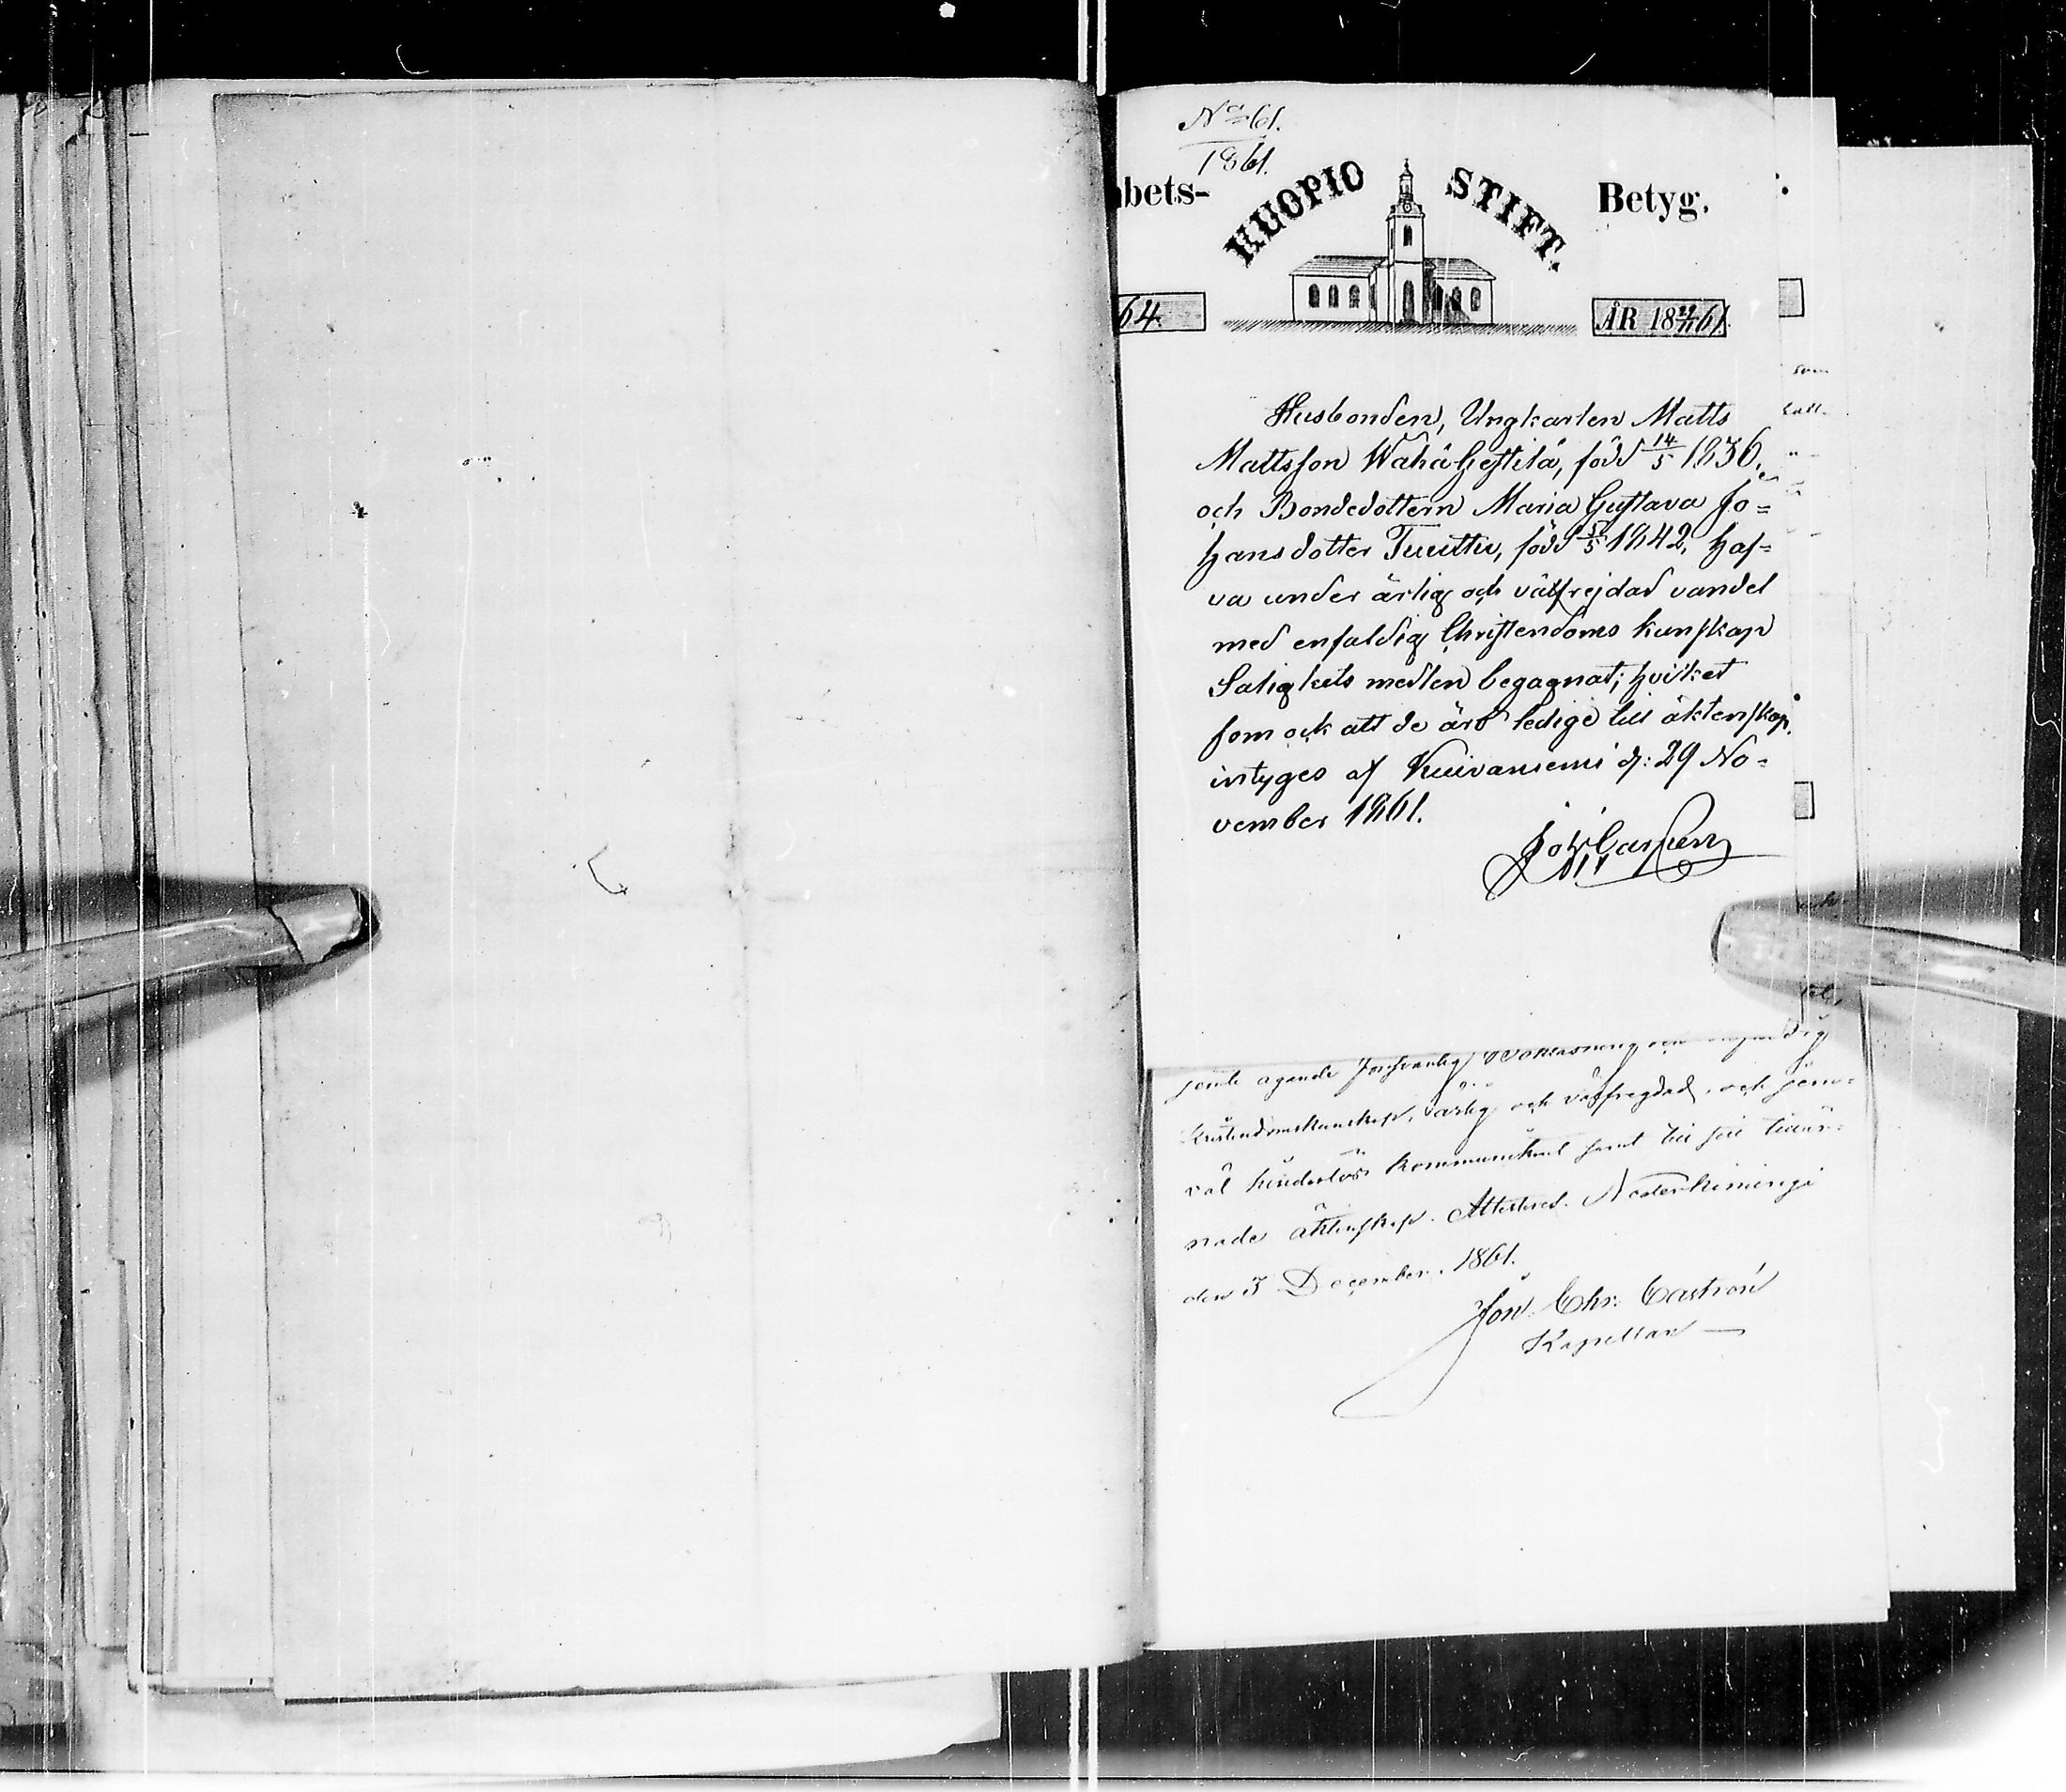 No 61.
1861.
bets-
KUOPIO STIFT.
Betyg.
64.
ÅR 18 29/11 61.
Husbonden, Ungkarlen Matts
Mattsson Wähä-Hestilä, född 14/5 1836,
och Bondedottern Maria Gustava Jo=
hansdotter Tuuttu, född 5/5 1842, haf=
va under ärlig och välfrejdad vandel
med enfaldig Christendoms kunskap
Salighets medlen begagnat; hvilket
som ock att de äro ledige till äktenskap,
intyges af Kuivaniemi d: 29 No=
vember 1861.
Joh Carlsen
som
hall
samt ägande försvarlig
Kristendomskunskap, ärlig och välfregdad, och jem=
väl hinderlös kommunikant samt till sin tillär=
nade äktenskap. Attesteras. Nederkiminge
den 3 December. 1861.
Jon. Chr. Castrén
Kapellan